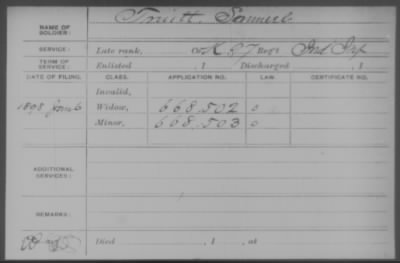 NAME OF SOLDIER: Truitt, Samuel
SERVICE: Late rank, Co. K, 67 Reg't Ind Inf
TERM OF SERVICE: Enlisted , 1 Discharged , 1
DATE OF FILING. CLASS. APPLICATION NO. LAW. CERTIFICATE NO.
Invalid,
1898 Jan 6 Widow, 668,502 o
Minor, 668,503 o
ADDITIONAL SERVICES:
REMARKS:
Died , 1 , at